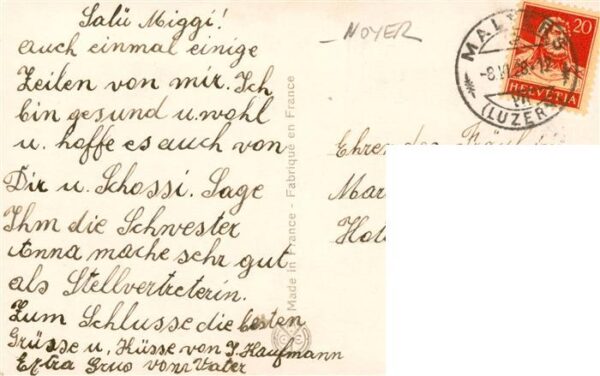 Salü Miggi!
auch einmal einige
Zeilen von mir. Ich
bin gesund u. wohl
u. hoffe es auch von
Dir u. Schossi. Sage
Ihm die Schwester
Anna mache sehr gut
als Stellvertreterin.
Zum Schlusse die besten
Grüsse u. Küsse von J. Kaufmann
Extra Grus vom Vater
Made in France - Fabriqué en France
NOYER
MALTERS
(LUZERN)
20
HELVETIA
Ehren
Mar
Hote